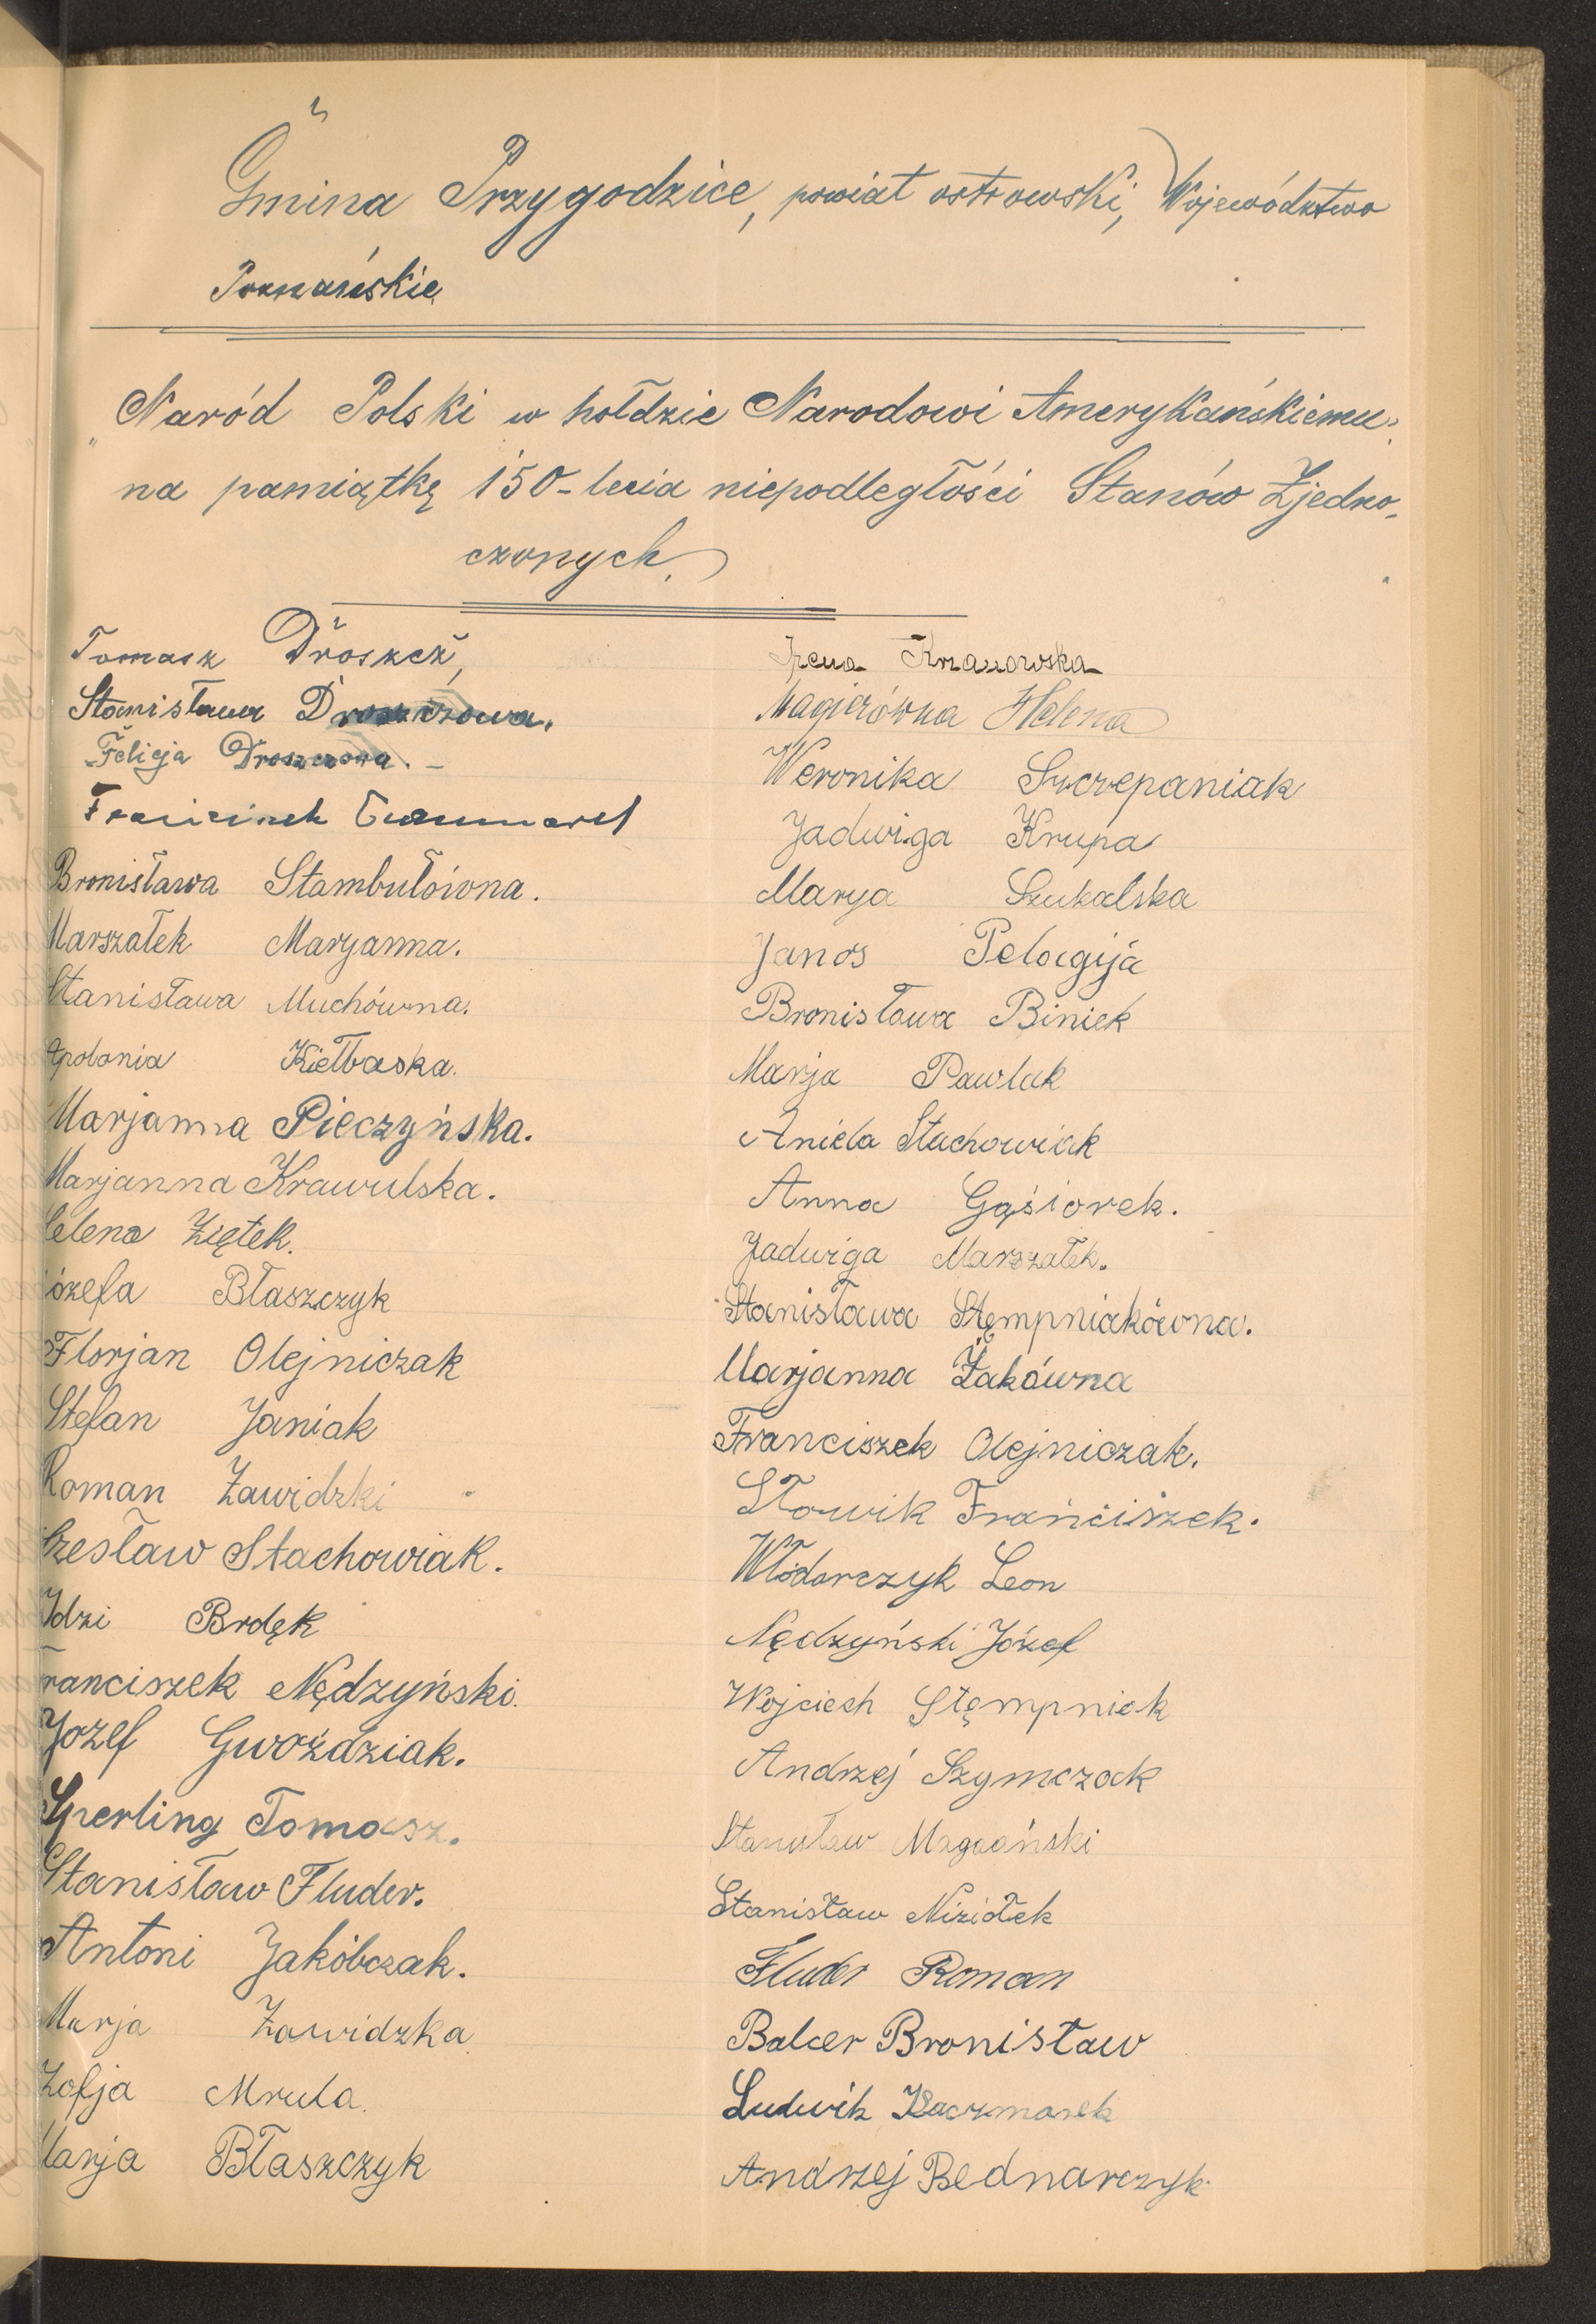 Gmina Przygodzice, powiat ostrowski, Województwo
Poznańskie
"Naród Polski w hołdzie Narodowi Amerykańskiemu,
na pamiątkę 150-lecia niepodległości Stanów Zjedno-
czonych.
Tomasz Droszcz,
Stanisława Droszczowa.
Felicja Droszczowa. -
Bronisława Stambułówna.
Marszałek Maryanna.
Stanisława Muchówna.
Apolonia Kiełbaska.
Marjanna Pieczyńska.
Marjanna Krawulska.
Helena Ziętek.
Józefa Błaszczyk
Florjan Olejniczak
Stefan Janiak
Roman Zawidzki
Czesław Stachowiak.
Idzi Brdęk
Franciszek Nędzyński.
Józef Gwoździak.
Sperling Tomasz.
Stanisław Fluder.
Antoni Jakóbczak.
Marja Zawidzka
Zofja Mrula.
Marja Błaszczyk
Irena
Magierówna Helena
Weronika Szczepaniak
Jadwiga Krupa
Marya Szukalska
Janos Pelagija
Bronisława Biniek
Marja Pawlak
Aniela Stachowiak
Anna Gąsiorek.
Jadwiga Marszałek.
Stanisława Stempniakówna.
Marjanna Żakówna
Franciszek Olejniczak.
Słowik Franciszek.
Włódarczyk Leon
Nędzyński Józef
Wojciech Stempniak
Andrzej Szymczak
Stanisław
Stanisław Niziołek
Fluder Roman
Balcer Bronisław
Ludwik Kaczmarek
Andrzej Bednarczyk